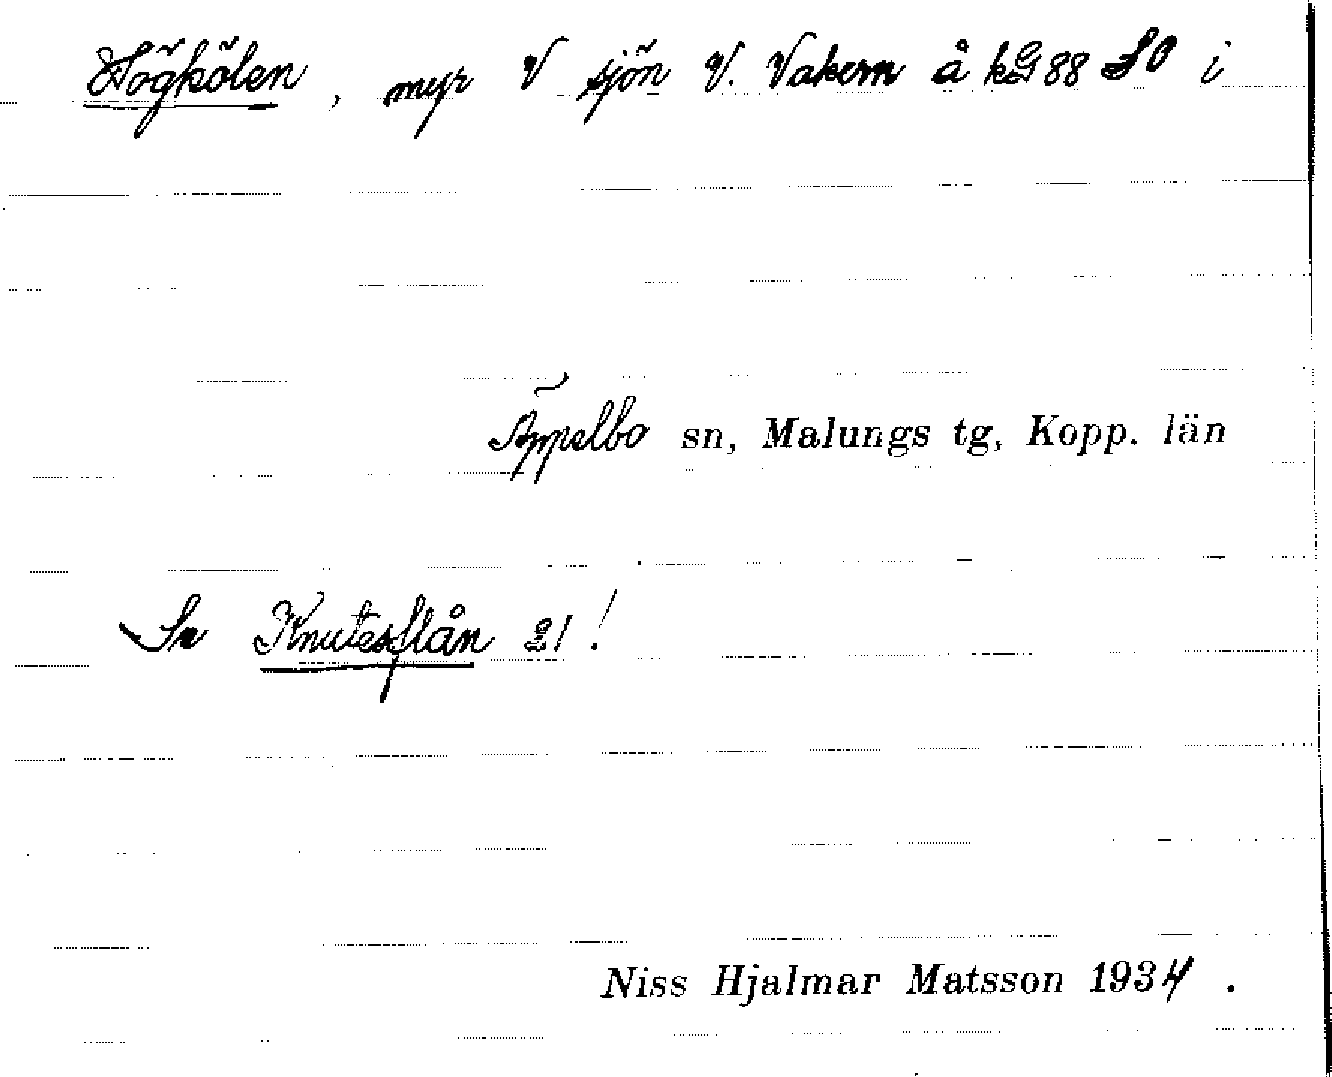 Högkölen, myr V sjön V. Vakern å kG 88 SO i
Äppelbo sn, Malungs tg, Kopp. län
Se Knutesflån 21!
Niss Hjalmar Matsson 1934.